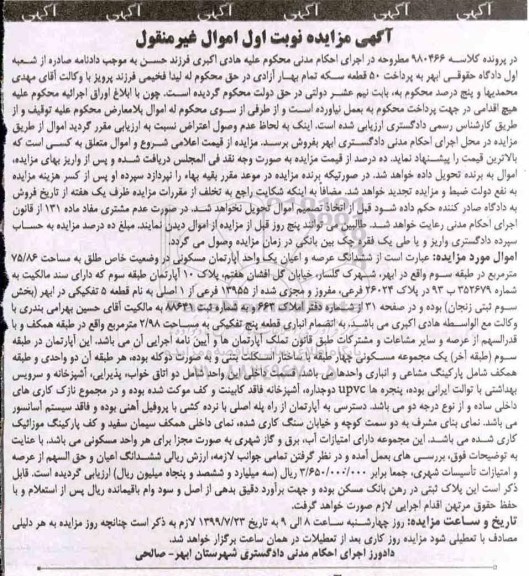 آگهی آگهی آگهی آگهی آگهی آگهی
آگهی مزایده نوبت اول اموال غیرمنقول
در پرونده کلاسه ۹۸۰۴۶۶ مطروحه در اجرای احکام مدنی محکوم علیه هادی اکبری فرزند حسن به موجب دادنامه صادره از شعبه
اول دادگاه حقوقی ابهر به پرداخت ۵۰ قطعه سکه تمام بهار آزادی در حق محکوم له لیدا فخیمی فرزند پرویز با وکالت آقای مهدی
محمدیها و پنج درصد محکوم به، بابت نیم عشر دولتی در حق دولت محکوم گردیده است. چون با ابلاغ اوراق اجرائیه محکوم علیه
هیچ اقدامی در جهت پرداخت محکوم به بعمل نیاورده است و از طرفی از سوی محکوم له اموال بلامعارض محکوم علیه توقیف و از
طریق کارشناس رسمی دادگستری ارزیابی شده است. اینک به لحاظ عدم وصول اعتراض نسبت به ارزیابی مقرر گردید اموال از طریق
مزایده در محل اجرای احکام مدنی دادگستری ابهر بفروش برسد. مزایده از قیمت اعلامی شروع و اموال متعلق به کسی است که
بالاترین قیمت را پیشنهاد نماید. ده درصد از قیمت مزایده به صورت وجه نقد فی المجلس دریافت شده و پس از واریز بهای مزایده،
اموال به برنده تحویل داده خواهد شد. در صورتیکه برنده مزایده در موعد مقرر بقیه بهاء را نپردازد سپرده او پس از کسر هزینه مزایده
به نفع دولت ضبط و مزایده تجدید خواهد شد. مضافا به اینکه شکایت راجع به تخلف از مقررات مزایده ظرف یک هفته از تاریخ فروش
به دادگاه صادر کننده حکم داده شود قبل از اتخاذ تصمیم اموال تحویل نخواهد شد. در صورت عدم مشتری مفاد ماده ۱۳۱ از قانون
اجرای احکام مدنی رعایت خواهد شد. طالبین می توانند پنج روز قبل از مزایده از اموال دیدن نمایند. مبلغ ده درصد مزایده به حساب
سپرده دادگستری واریز و یا طی یک فقره چک بین بانکی در زمان مزایده وصول می گردد.
اموال مورد مزایده: عبارت است از ششدانگ عرصه و اعیان یک واحد آپارتمان مسکونی در وضعیت خاص طلق به مساحت ۷۵/۸۶
مترمربع در طبقه سوم واقع در ابهر، شهرک گلسار، خیابان گل افشان هفتم، پلاک ۱۰ آپارتمان طبقه سوم که دارای سند مالکیت به
شماره ۳۵۲۶۷۹ ب ۹۳ در پلاک ۲۶۰۲۴ فرعی، مفروز و مجزی شده از ۱۳۹۵۵ فرعی از ۱ اصلی به نام قطعه ۵ تفکیکی در ابهر (بخش
سوم ثبتی زنجان) بوده و در صفحه ۳۱ از شماره دفتر املاک ۶۶۳ به مالکیت آقای حسین بهرامی بندری با
وکالت مع الواسطه هادی اکبری می باشد. به انضمام انباری قطعه پنج تفکیکی به مساحت ۲/۹۸ مترمربع واقع در طبقه همکف و با
قدرالسهم از عرصه و سایر مشاعات و مشترکات طبق قانون تملک آپارتمان ها و آیین نامه اجرایی آن می باشد. این آپارتمان در طبقه
سوم (طبقه آخر) یک مجموعه مسکونی چهار طبقه با ساختار اسکلت بتنی و به صورت دوکله بوده، هر طبقه آن دو واحدی و طبقه
همکف شامل پارکینگ مشاعی و انباری واحدها می باشد. قسمت داخلی این واحد شامل دو اتاق خواب، پذیرایی، آشپزخانه و سرویس
بهداشتی با توالت ایرانی بوده، پنجره ها upvc دوجداره، آشپزخانه فاقد کابینت و کف موکت شده بوده و در مجموع نازک کاری های
داخلی ساده و از نوع درجه دو می باشد. دسترسی به آپارتمان از راه پله اصلی با نرده کشی با پروفیل آهنی بوده و فاقد سیستم آسانسور
می باشد. نمای بنای مشرف به دو سمت کوچه و خیابان سنگ کاری شده، نمای داخلی همکف سیمان سفید و کف پارکینگ موزائیک
کاری شده می باشد. این مجموعه دارای امتیازات آب، برق و گاز شهری به صورت مجزا برای هر واحد مسکونی می باشد. با عنایت
به توضیحات فوق، بررسی های بعمل آمده و در نظر گرفتن تمامی جوانب لازمه، ارزش ریالی ششدانگ اعیان و حق السهم از عرصه
و امتیازات تأسیسات شهری، جمعا برابر ۳/۶۵۰/۰۰۰/۰۰۰ ریال (سه میلیارد و ششصد و پنجاه میلیون ریال) ارزیابی گردیده است. قابل
ذکر است این پلاک ثبتی در رهن بانک مسکن بوده و جهت برآورد دقیق بدهی از اصل و سود وام باقیمانده ریال پس از استعلام و با
حفظ حقوق مرتهن اقدام اجرایی لازم صورت خواهد گرفت.
تاریخ و ساعت مزایده: روز چهارشنبه ساعت ۸ الی ۹ به تاریخ ۱۳۹۹/۷/۲۳ لازم به ذکر است چنانچه روز مزایده به هر دلیلی
مصادف با تعطیلی شود مزایده روز کاری بعد از تعطیلات در همان ساعت برگزار خواهد شد.
دادورز اجرای احکام مدنی دادگستری شهرستان ابهر- صالحی